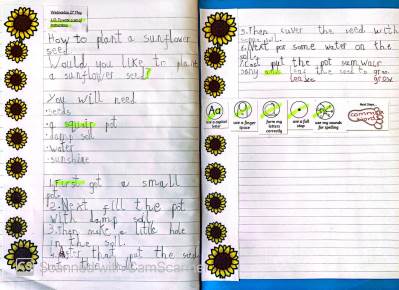 Wednesday 17 May
How to plant a sunflower
seed
Would you like to plant
a sunflower seed?
You will need
•seeds
•a squair pot
•damp soil
•water
•sunshine
1.First get a small
pot
2.Next fill the pot
with damp soil.
3.then make a little hole
in the soil.
4.After that put the seed
in the
Scanned with CamScanner
5.Then cuver the seed with
soil.
6.Next por some water on the
soil.
7.Last put the pot sumwair
suny and leaf the seed to grow.
leave grow
Aa
use a capital letter
use a finger space
form my letters correctly
use a full stop
use my sounds for spelling
Next Steps
common words